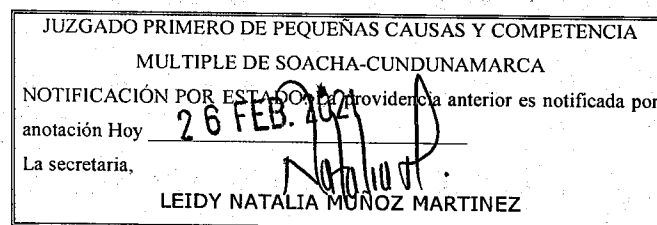 JUZGADO PRIMERO DE PEQUEÑAS CAUSAS Y COMPETENCIA
MULTIPLE DE SOACHA-CUNDUNAMARCA
NOTIFICACIÓN POR ESTADO: La providencia anterior es notificada por
anotación Hoy 26 FEB. 2021
La secretaria,
Natalia M.
LEIDY NATALIA MUÑOZ MARTINEZ